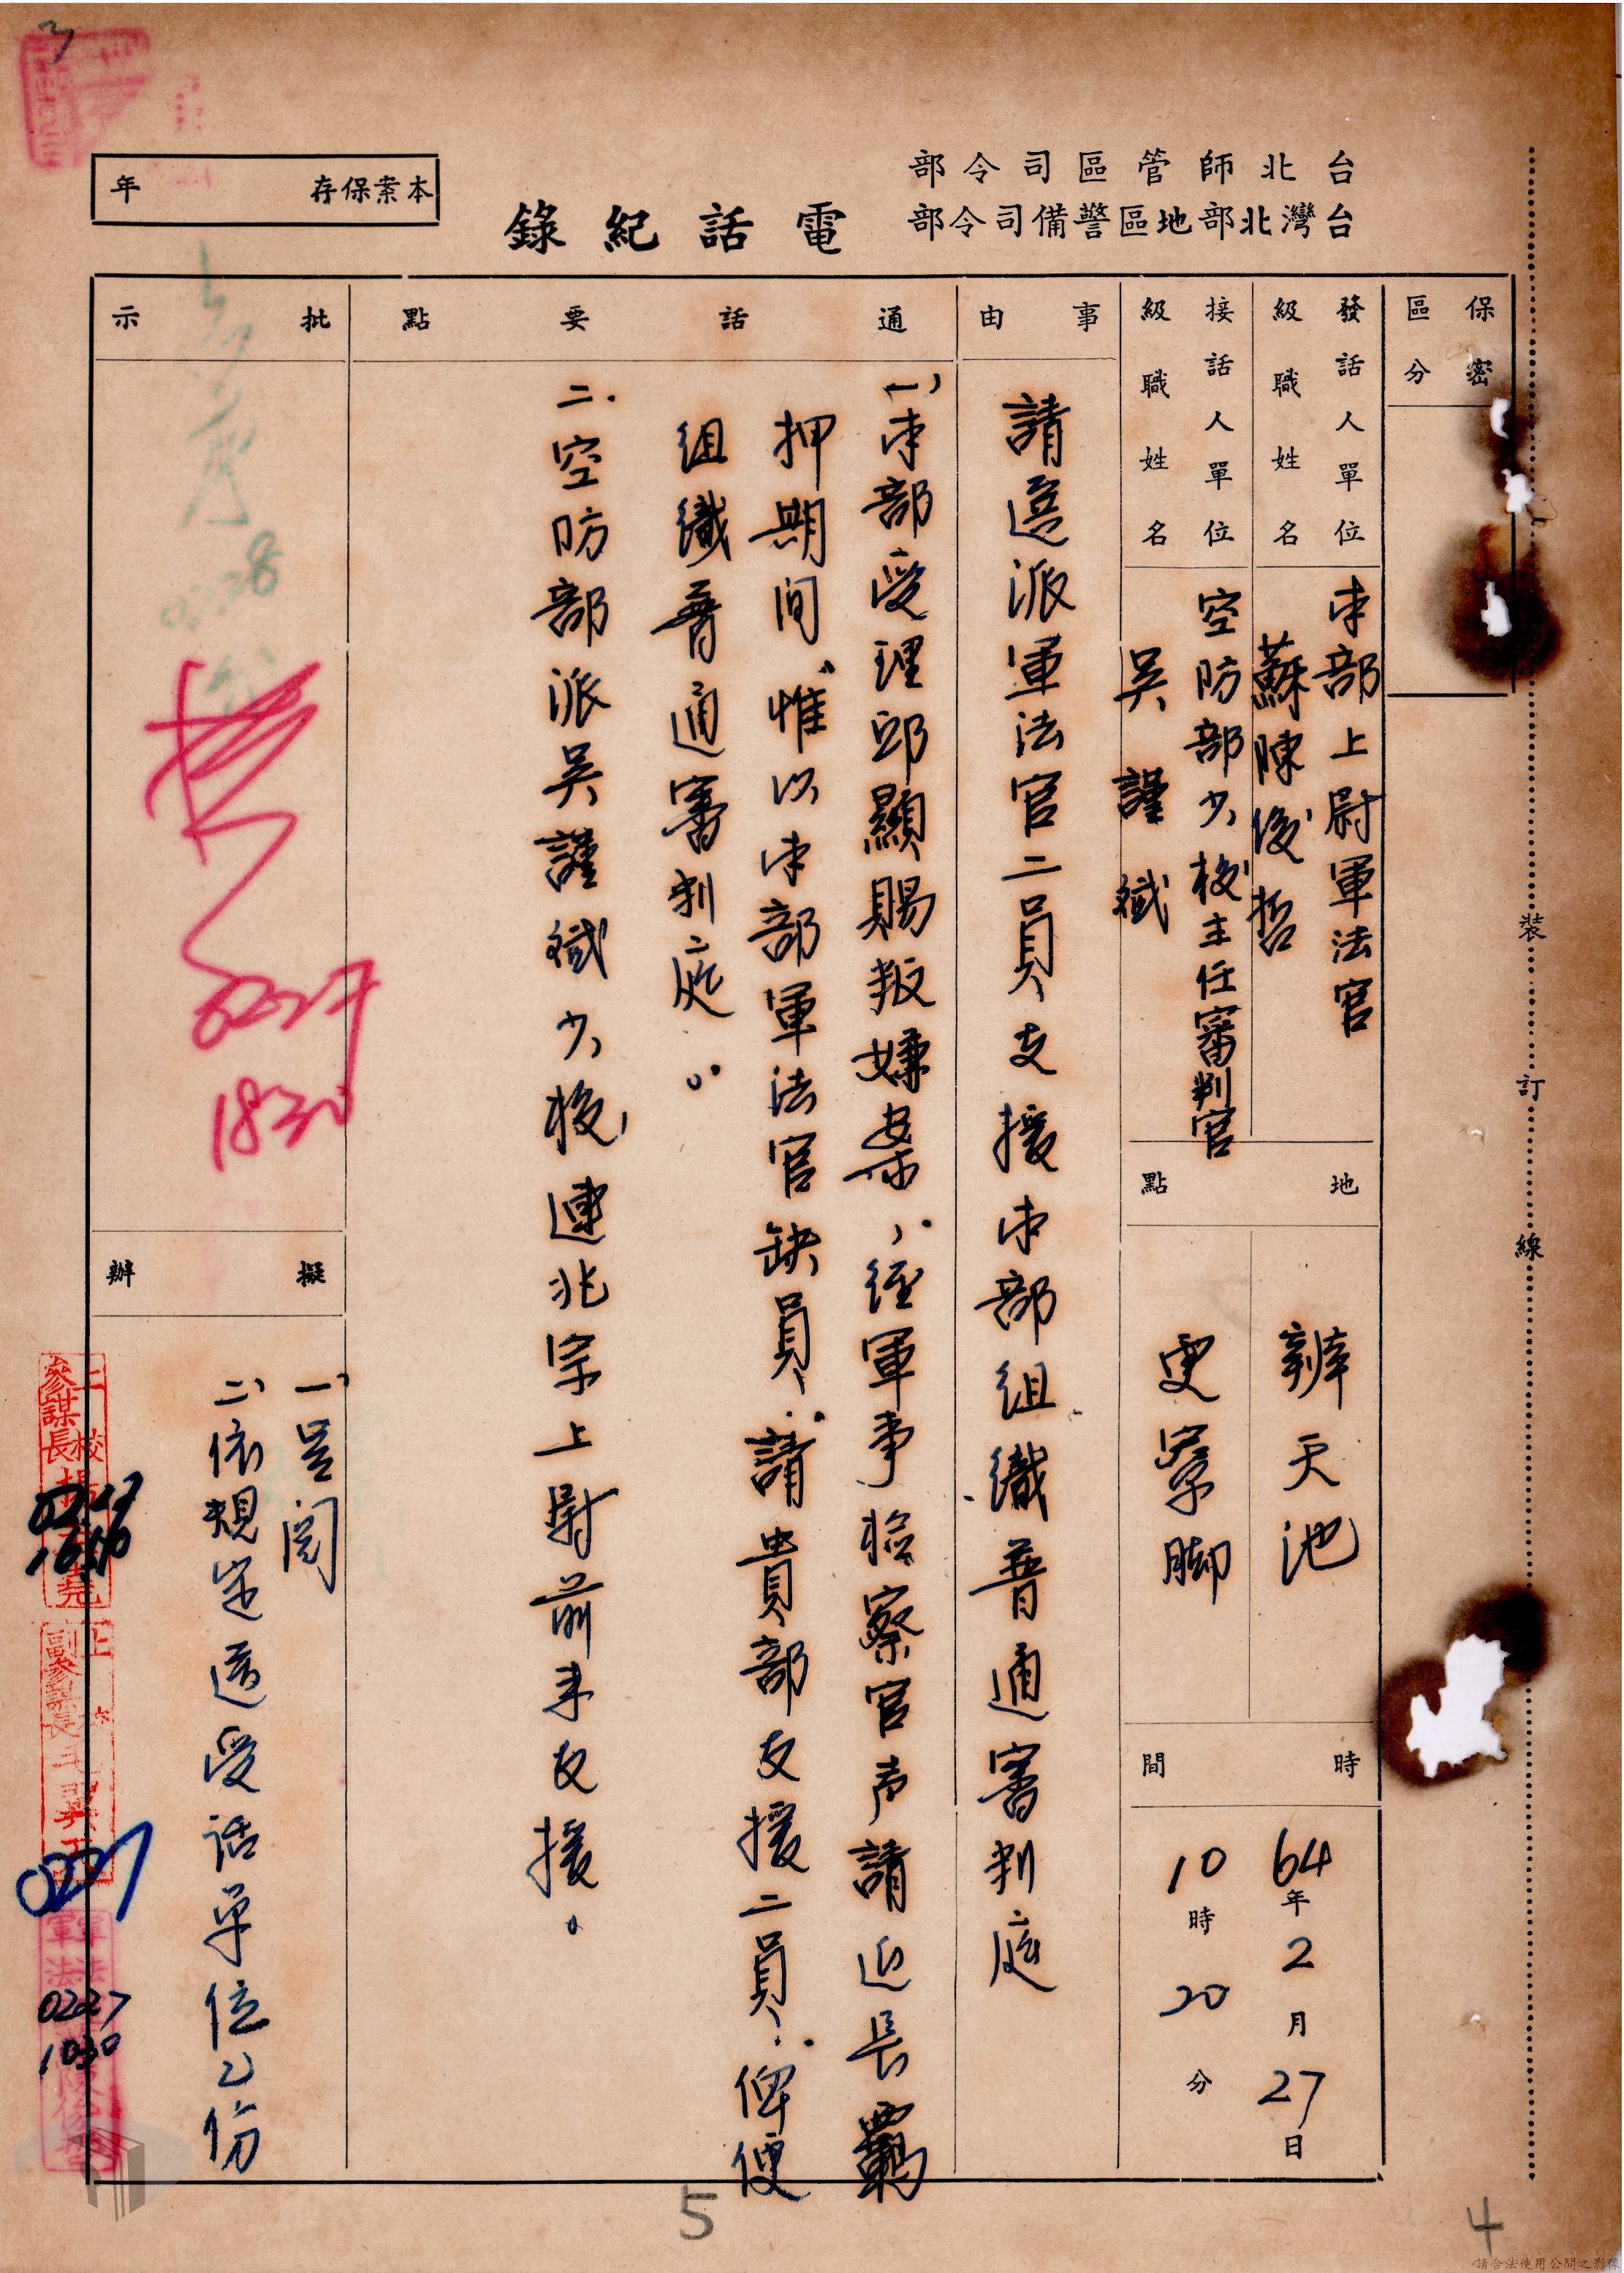 台北師管區司令部
台灣北部地區警備司令部
電話紀錄
本案保存 年
保密區分
發話人單位級職姓名
本部上尉軍法官
蘇陳俊哲
接話人單位級職姓名
空防部少校主任審判官
吳謹斌
地點
辦天池
更寮腳
時間
64年2月27日
10時20分
事由
請遴派軍法官二員支援本部組織普通審判庭
通話要點
一、本部受理邱顯賜叛嫌案，經軍事檢察官声請延長羈
押期間，惟以本部軍法官缺員，請貴部支援二員，俾便
組織普通審判庭。
二.空防部派吳謹斌少校、連兆宗上尉前來支援。
批示
0227
1830
擬辦
一、呈閱
二、依規定送受話單位乙份
上校參謀長
0227
副參謀長
0227
軍法
0227
1030
裝訂線
5
4
請合法使用公開之影像